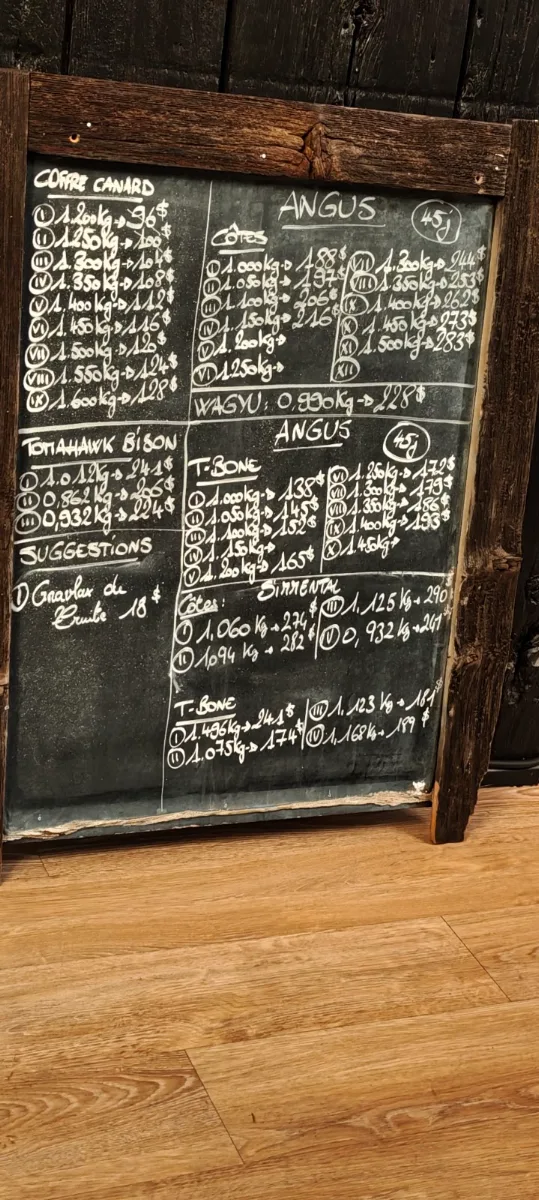 COFFRE CANARD
I 1.200kg→ 96$
II 1.250kg→ 100$
III 1.300kg→ 104$
IV 1.350kg→ 108$
V 1.400kg→ 112$
VI 1.450kg→ 116$
VII 1.500kg→ 120$
VIII 1.550kg→ 124$
IX 1.600kg→ 128$
TOMAHAWK BISON
I 1.012kg→ 241$
II 0,862kg→ 206$
III 0,932kg→ 224$
SUGGESTIONS
I) Gravlax de
truite 18$
ANGUS 45j
CÔTES
I 1.000kg→ 188$
II 1.050kg→ 197$
III 1.100kg→ 206$
IV 1.150kg→ 216$
V 1.200kg→
VI 1250kg→
VII 1.300kg→ 244$
VIII 1.350kg→ 253$
IX 1.400kg→ 262$
X 1.450kg→ 273$
XI 1.500kg→ 283$
XII
WAGYU: 0,990kg→ 228$
ANGUS 45j
T-BONE
I 1.000kg→ 138$
II 1.050kg→ 145$
III 1.100kg→ 152$
IV 1.150kg→
V 1.200kg→ 165$
VI 1.250kg→ 172$
VII 1.300kg→ 179$
VIII 1.350kg→ 186$
IX 1.400kg→ 193$
X 1.450kg→
SIMMENTAL
Côtes:
I 1,060 kg→ 274$
II 1,094 kg→ 282$
III 1,125 kg→ 290$
IV 0,932 kg→ 241$
T-BONE
I 1.496kg→ 241$
II 1.075kg→ 174$
III 1.123 kg→ 181$
IV 1,168kg→ 189$